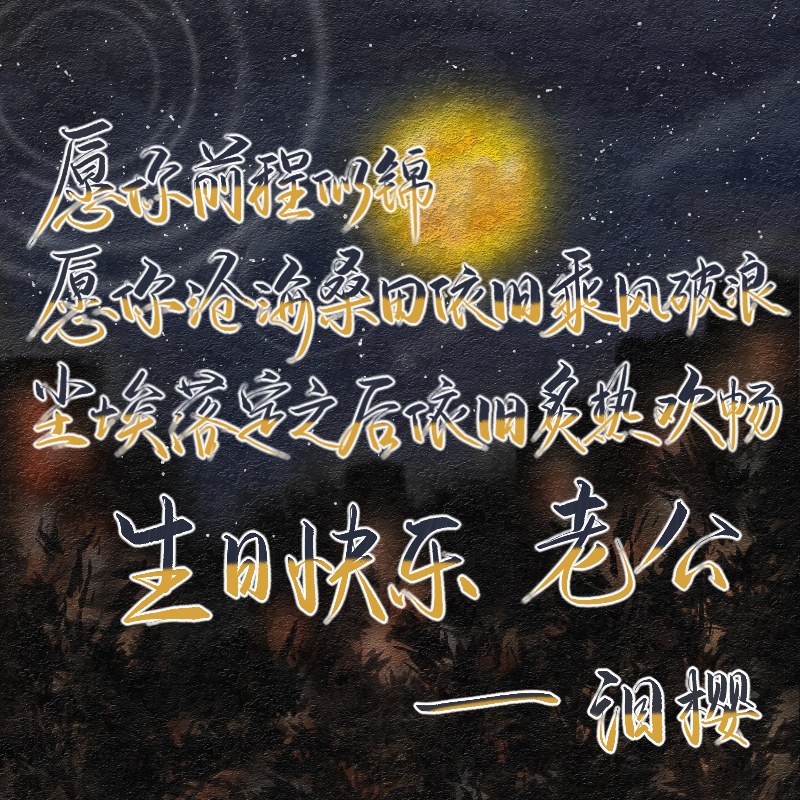 愿你前程似锦
愿你沧海桑田依旧乘风破浪
尘埃落定之后依旧炙热欢畅
生日快乐 老公
一泪樱